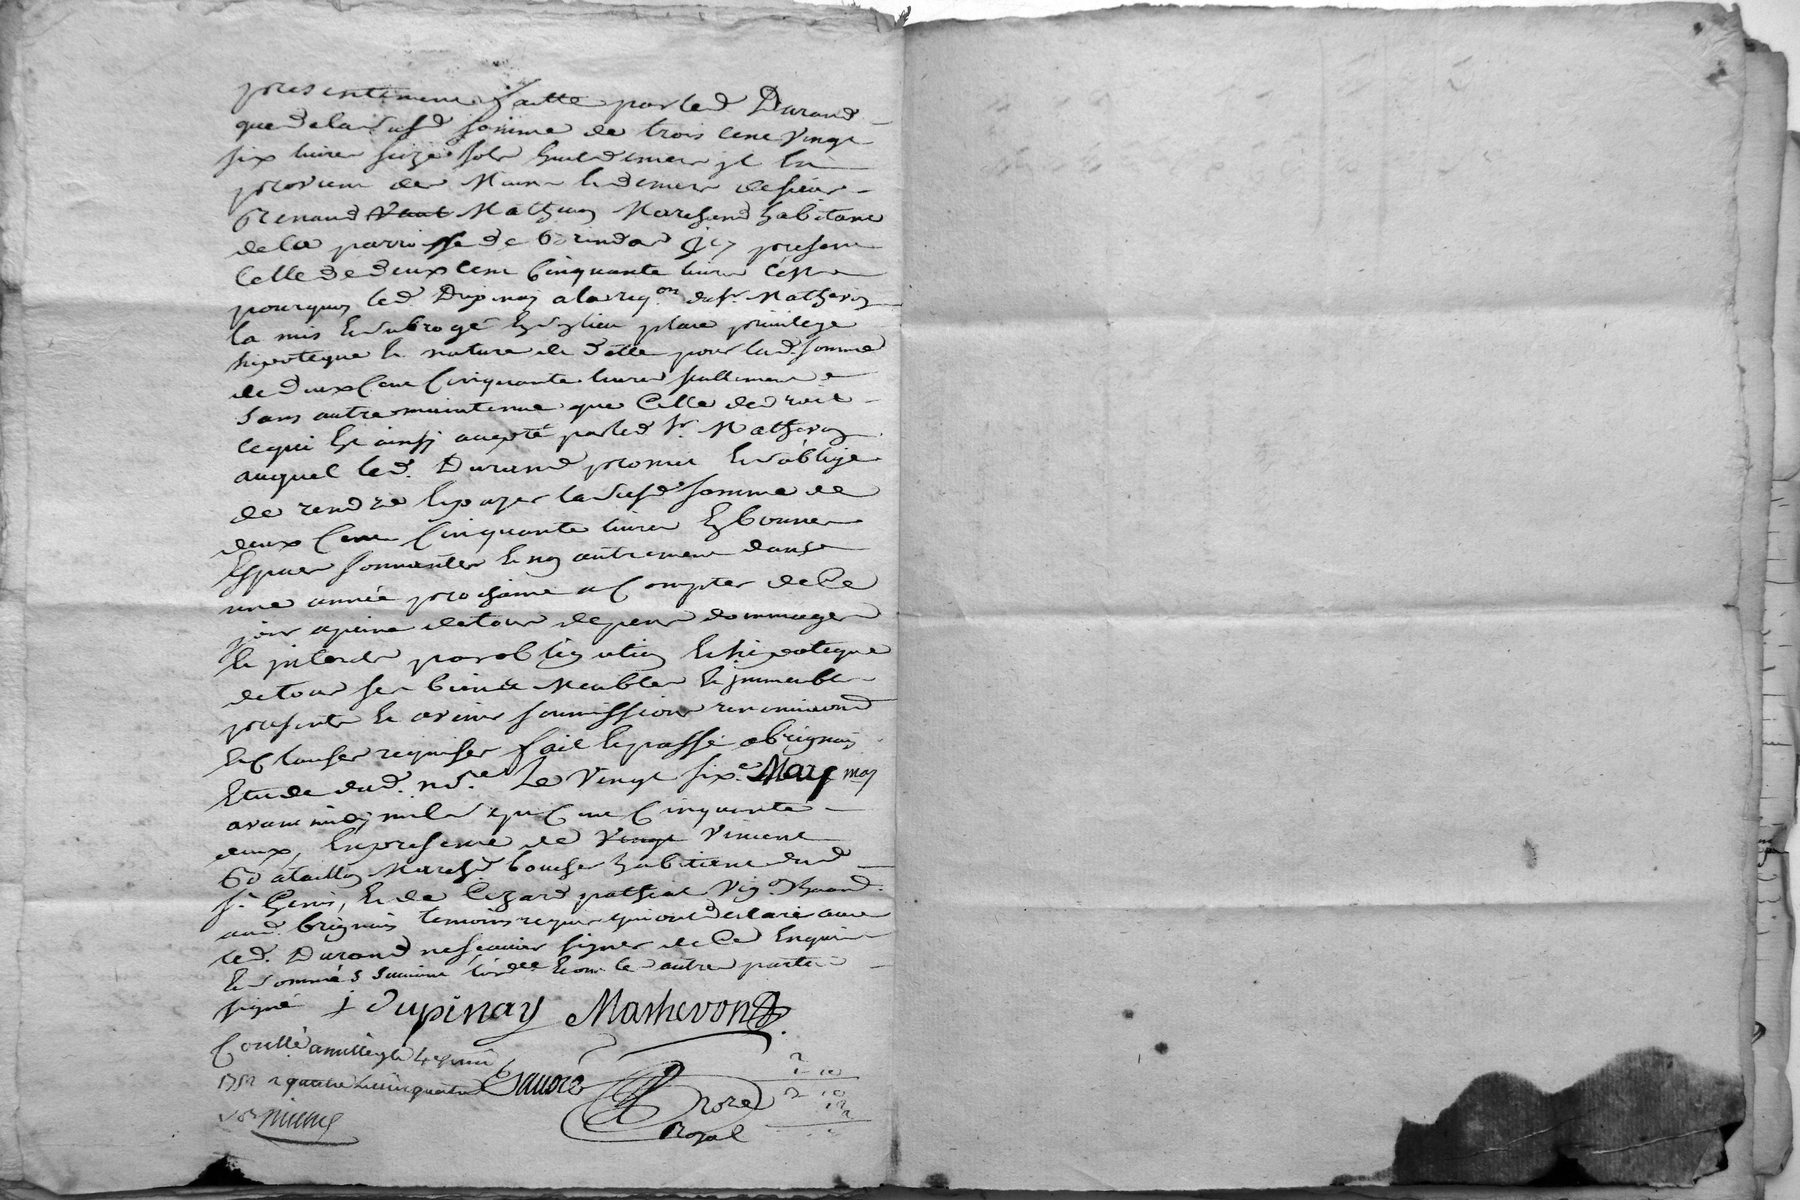 presentement faitte par led Durand
que de la susd somme de trois cent vingt
six livres seize sols huit deniers il lui
provient des Mains et deniers de sieur
Mathevon Marchand habitant
de la parroisse de Brindas icy present
Celle de deux cent Cinquante livres C'est
pourquoy led. Dupinay a la reqon du sr. Mathevon
la mis et subrogé en son lieu place privilege
hipoteque et nature de dette pour lad. somme
de deux Cent Cinquante livres seullement
sans autre maintenue que Celle de droit
ce qui est ainsy accepté par led Sr. Mathevon
auquel led. Durand promet et s'oblige
de rendre et payer la susd somme de
deux Cent Cinquante livres En bonnes
Espèces sonnantes et non autrement dans
une année prochaine a Compter de Ce
jour a peine de tous depens dommages
et interets par obligation et hipoteque
de tous ses biens Meubles et immeubles
presents et avenir soumissions renonciaons
et Clauses requises fait et passé a brignais
Etude dud. nore Le vingt sixe May may
avant midy mil sept Cent Cinquante
deux, En presence de Vincent
Bataillon Marchd boucher habitant dud
st. Genis, et de Cezard pathiat Vigon
aud. brignais temoins requis qui ont declaré avec
led. Durand ne sçavoir signer de Ce Enquis
et sommés suivant l'ordce et ont les autres parties
signé J Dupinay Mathevon
Conllé a le 4e juin
1752 quatre